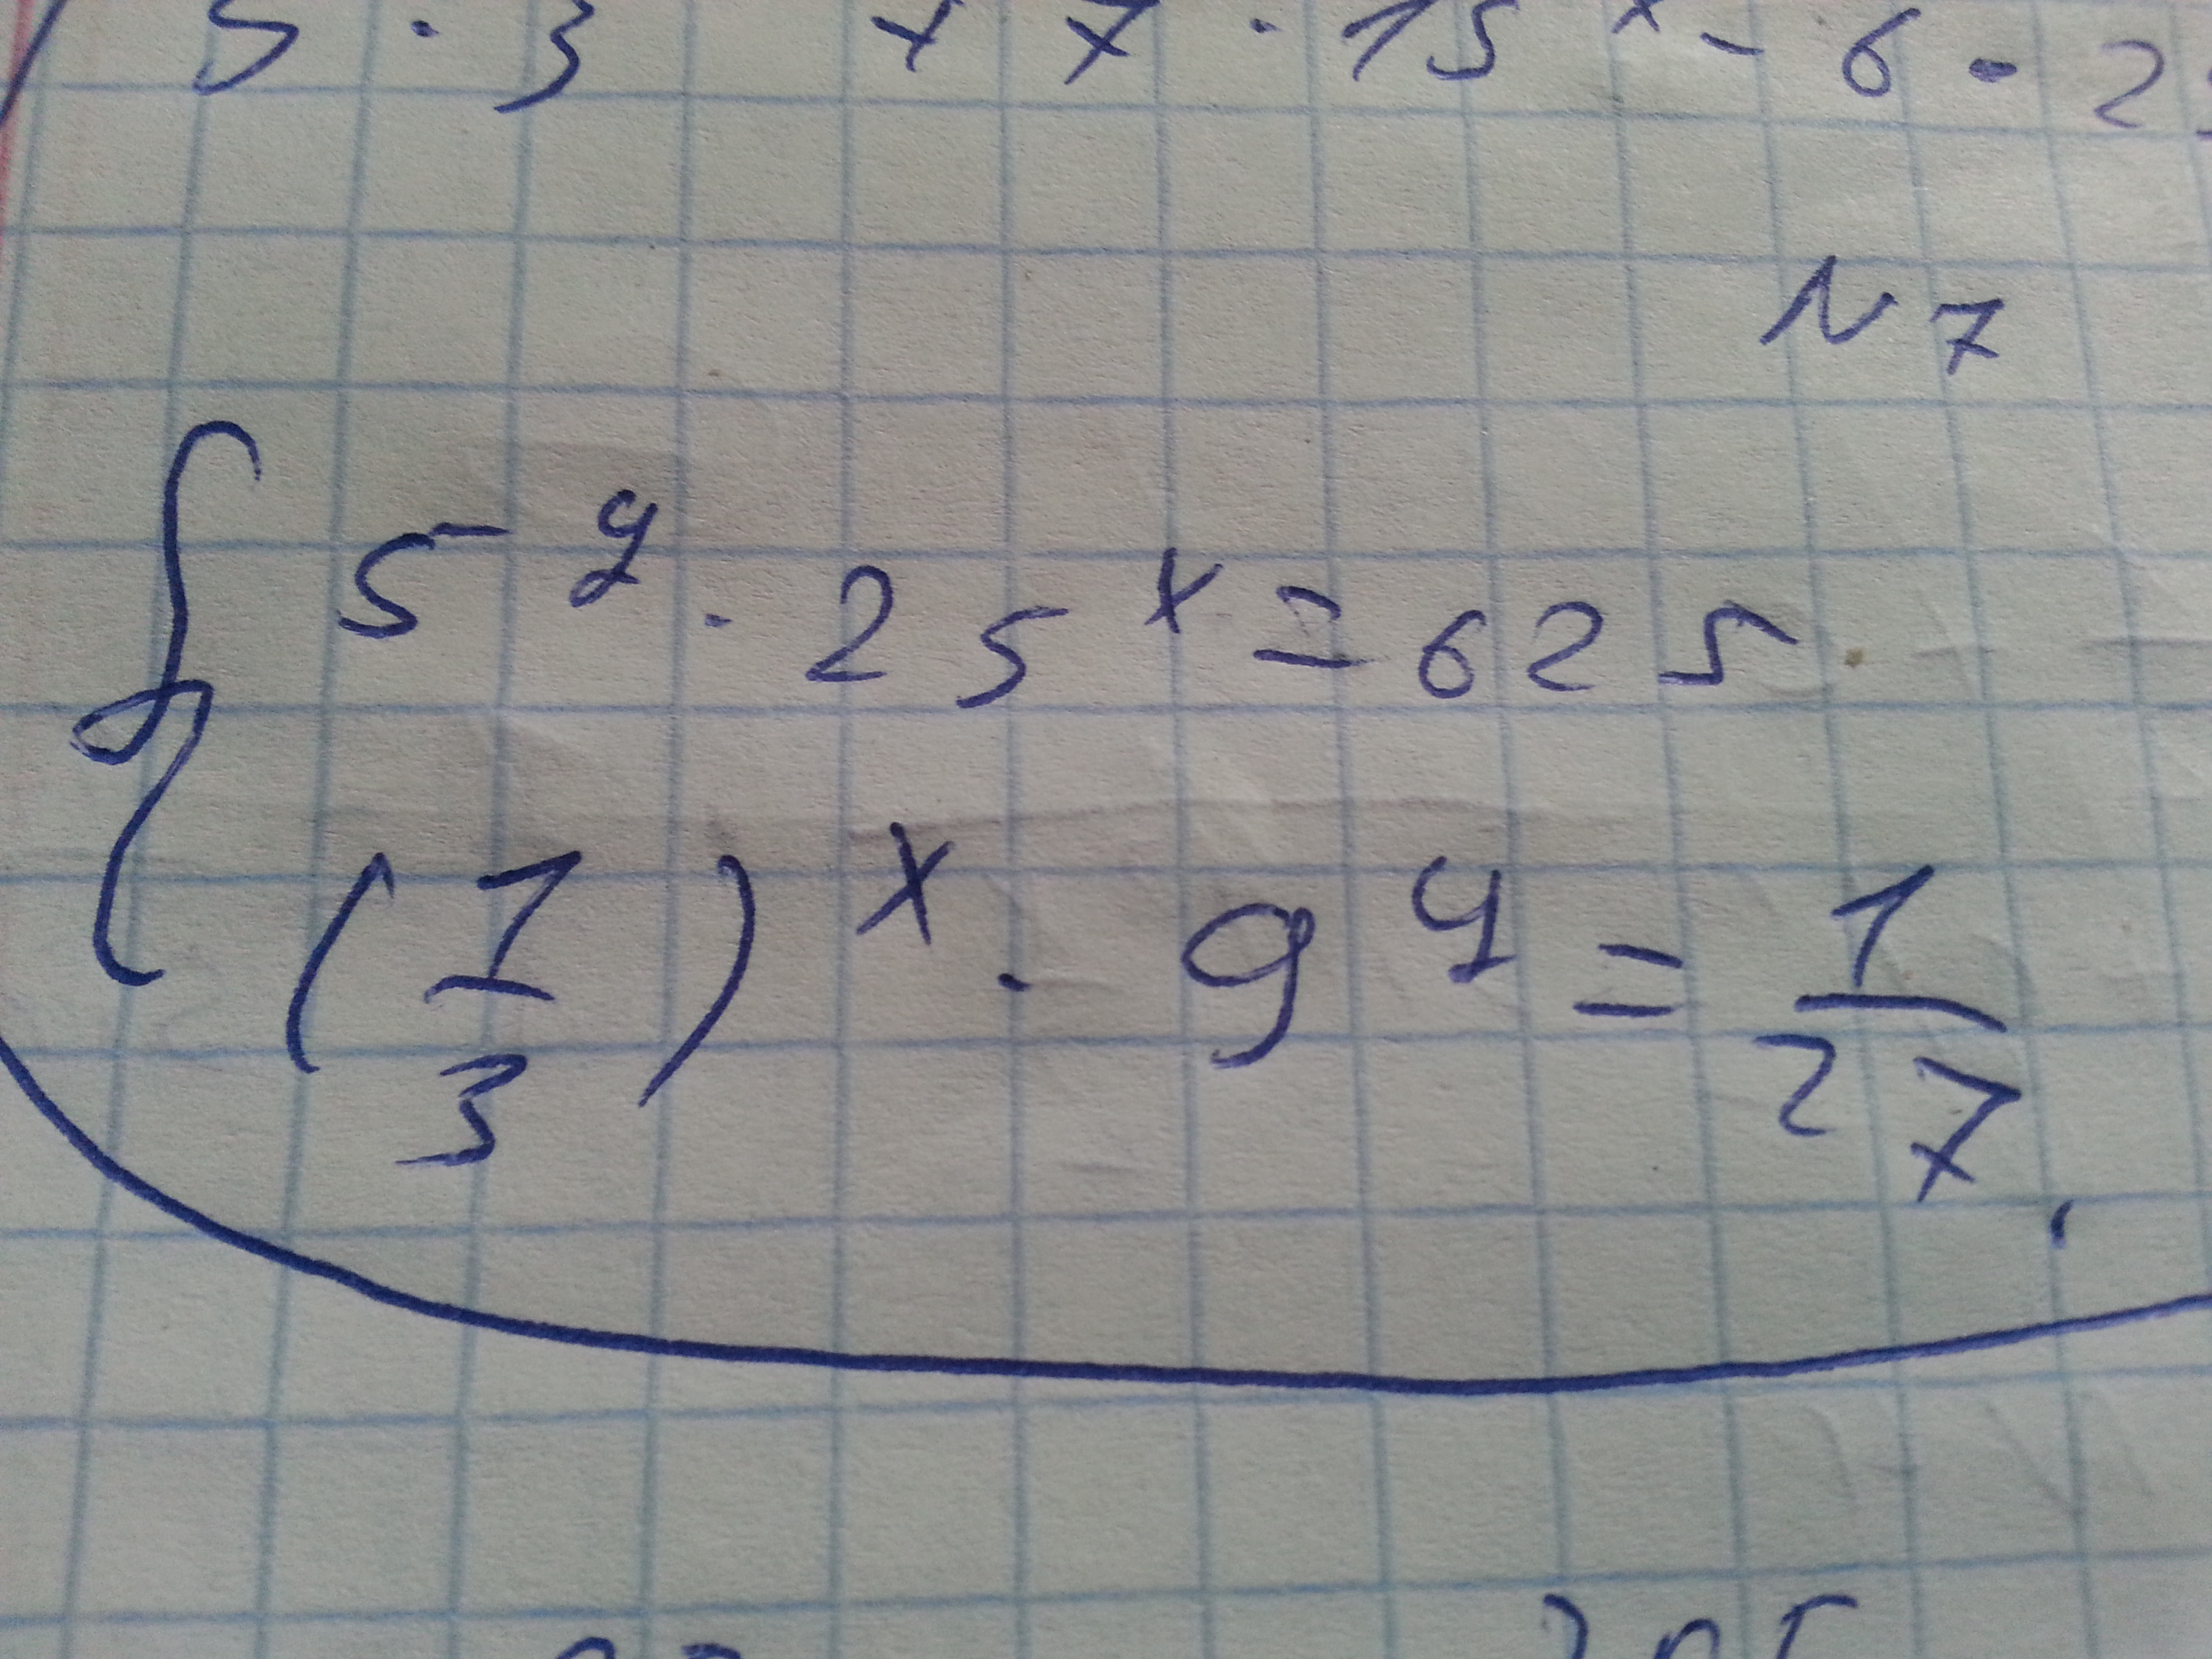 5 · 3 + 7 · 15^x - 6 · 2
N 7
5^{-y} · 25^x = 625
(1/3)^x · 9^y = 1/27.